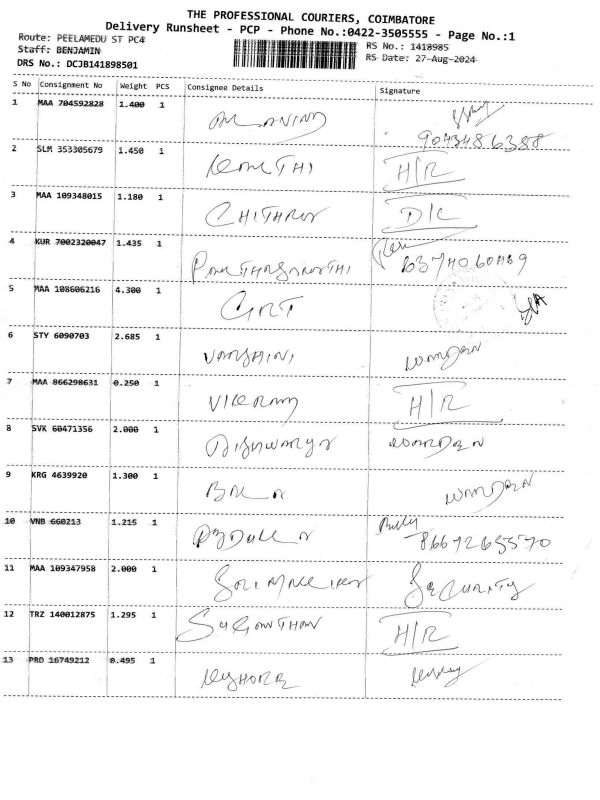 THE PROFESSIONAL COURIERS, COIMBATORE
Delivery Runsheet - PCP - Phone No.:0422-3505555 - Page No.:1
Route: PEELAMEDU ST PC4 RS No.: 1418985
Staff: BENJAMIN RS Date: 27-Aug-2024
DRS No.: DCJB141898501
S No Consignment No Weight PCS Consignee Details Signature
1 MAA 704592828 1.400 1
9043486388
2 SLM 353305679 1.450 1 H/R
3 MAA 109348015 1.180 1 CHITHRA D/C
4 KUR 7002320047 1.435 1
5 MAA 108606216 4.300 1 GRT
6 STY 6090703 2.685 1 VARSHINI WARDEN
7 MAA 866298631 0.250 1 VIKRAM H/R
8 SVK 60471356 2.000 1 AISHWARYA WARDEN
9 KRG 4639920 1.300 1 BALA WARDEN
10 VNB 660213 1.215 1 ABDULLA
8667265570
11 MAA 109347958 2.000 1 SECURITY
12 TRZ 140012875 1.295 1 H/R
13 PRD 16749212 0.495 1 KISHORE